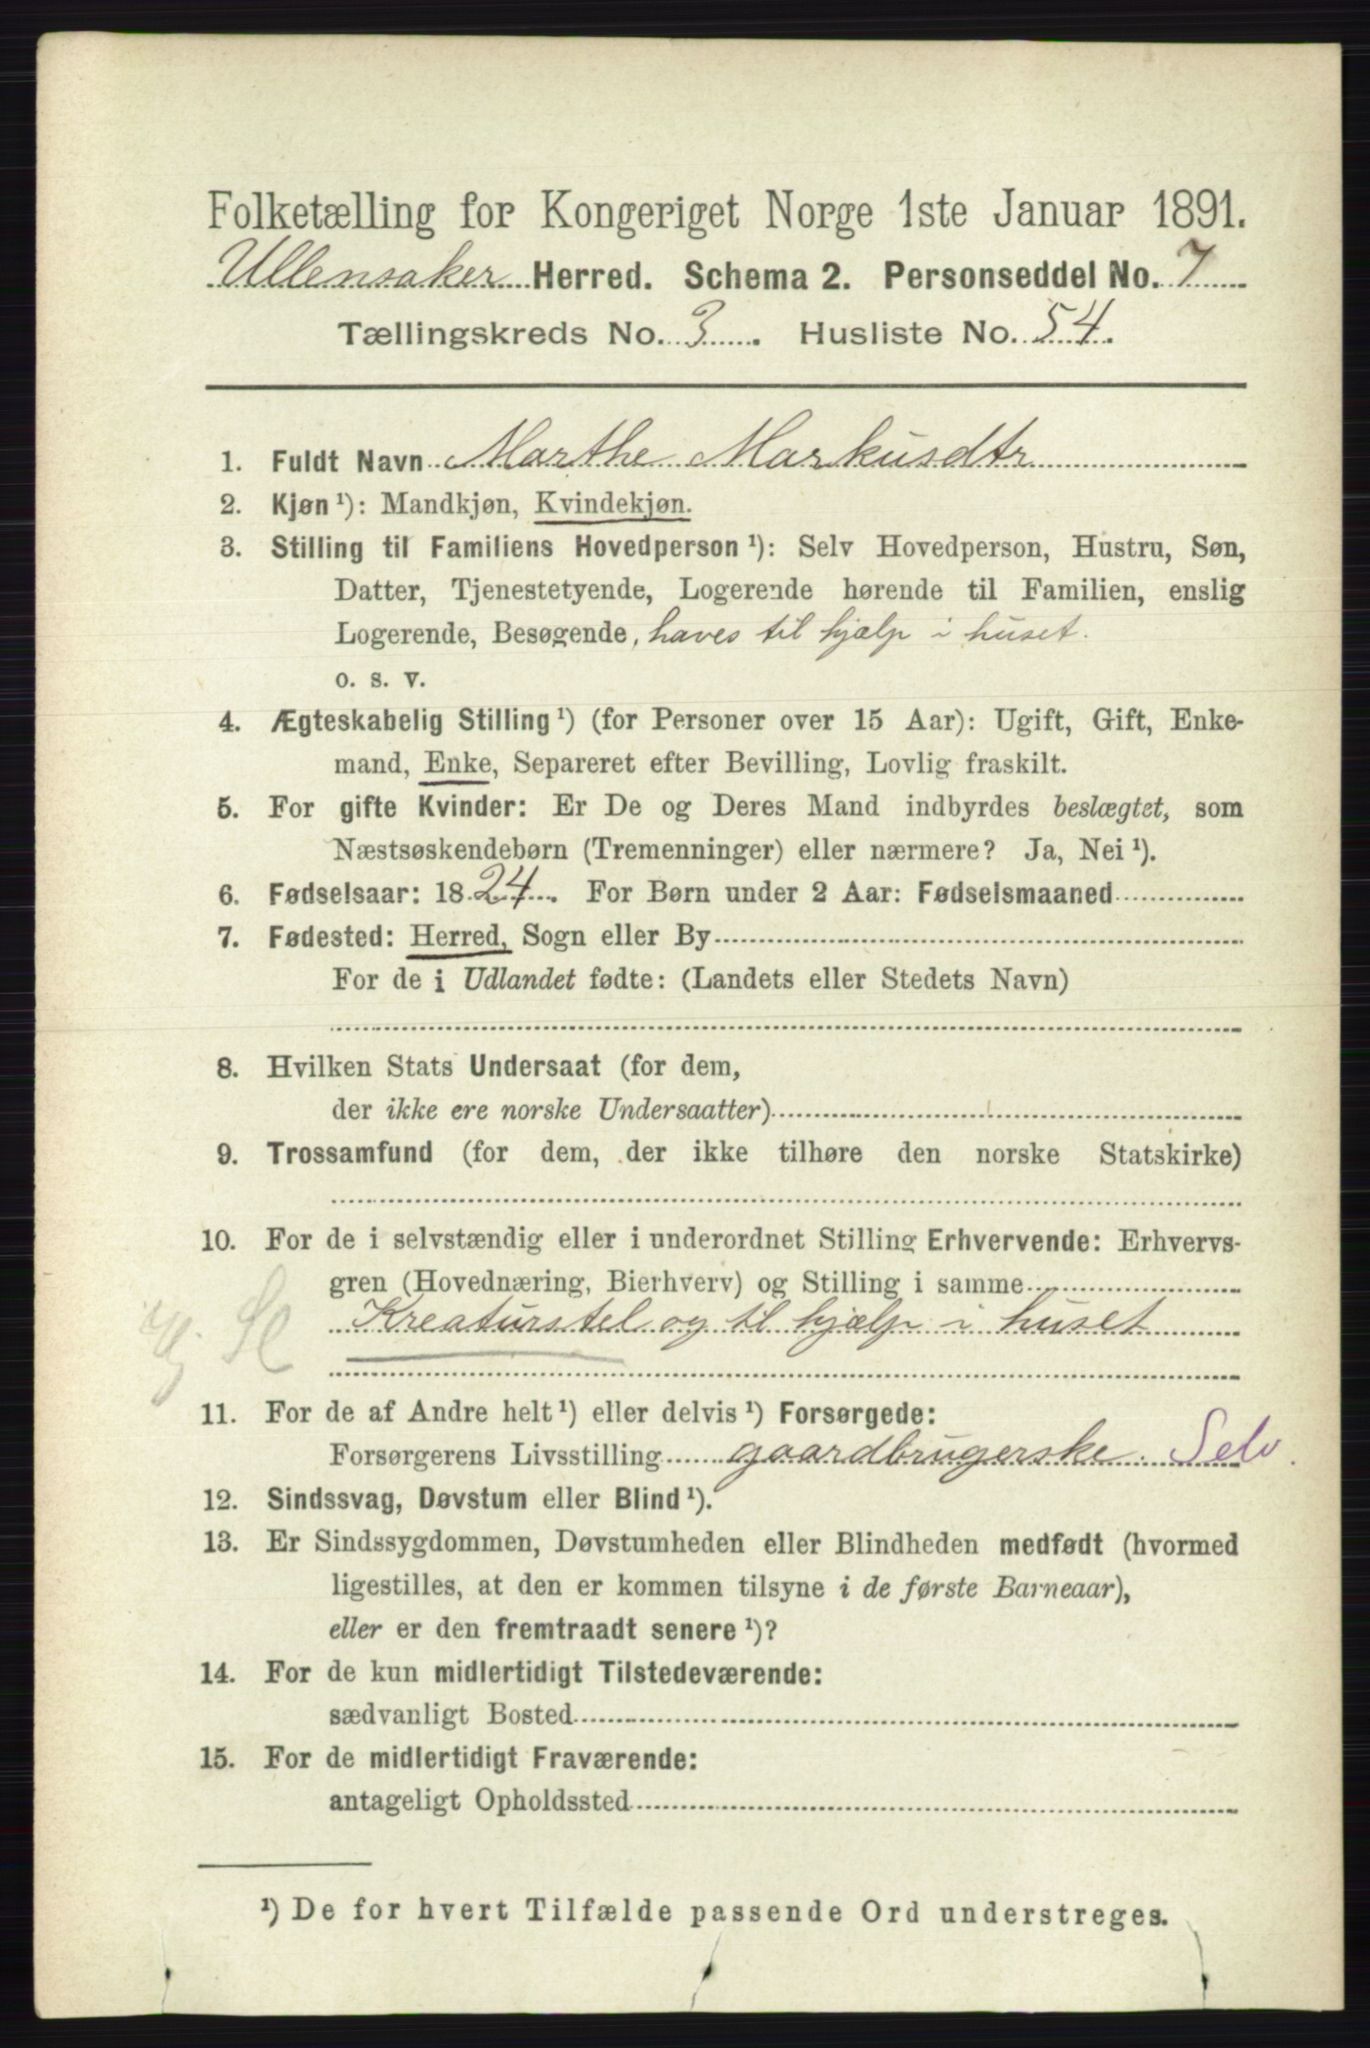 Folketælling for Kongeriget Norge 1ste Januar 1891.
Ullensaker Herred. Schema 2. Personseddel No. 7
Tællingskreds No. 3. Husliste No. 54.
1. Fuldt Navn Marthe Markusdtr
2. Kjøn ¹): Mandkjøn, Kvindekjøn.
3. Stilling til Familiens Hovedperson ¹): Selv Hovedperson, Hustru, Søn,
Datter, Tjenestetyende, Logerende hørende til Familien, enslig
Logerende, Besøgende, haves til hjælp i huset.
o. s. v.
4. Ægteskabelig Stilling ¹) (for Personer over 15 Aar): Ugift, Gift, Enke-
mand, Enke, Separeret efter Bevilling, Lovlig fraskilt.
5. For gifte Kvinder: Er De og Deres Mand indbyrdes beslægtet, som
Næstsøskendebørn (Tremenninger) eller nærmere? Ja, Nei ¹).
6. Fødselsaar: 1824. For Børn under 2 Aar: Fødselsmaaned
7. Fødested: Herred, Sogn eller By
For de i Udlandet fødte: (Landets eller Stedets Navn)
8. Hvilken Stats Undersaat (for dem,
der ikke ere norske Undersaatter)
9. Trossamfund (for dem, der ikke tilhøre den norske Statskirke)
10. For de i selvstændig eller i underordnet Stilling Erhvervende: Erhvervs-
gren (Hovednæring, Bierhverv) og Stilling i samme
Kreaturstel og til hjælp i huset
11. For de af Andre helt ¹) eller delvis ¹) Forsørgede:
Forsørgerens Livsstilling gaardbrugerske. Selv.
12. Sindssvag, Døvstum eller Blind ¹).
13. Er Sindssygdommen, Døvstumheden eller Blindheden medfødt (hvormed
ligestilles, at den er kommen tilsyne i de første Barneaar),
eller er den fremtraadt senere ¹)?
14. For de kun midlertidigt Tilstedeværende:
sædvanligt Bosted
15. For de midlertidigt Fraværende:
antageligt Opholdssted
¹) De for hvert Tilfælde passende Ord understreges.